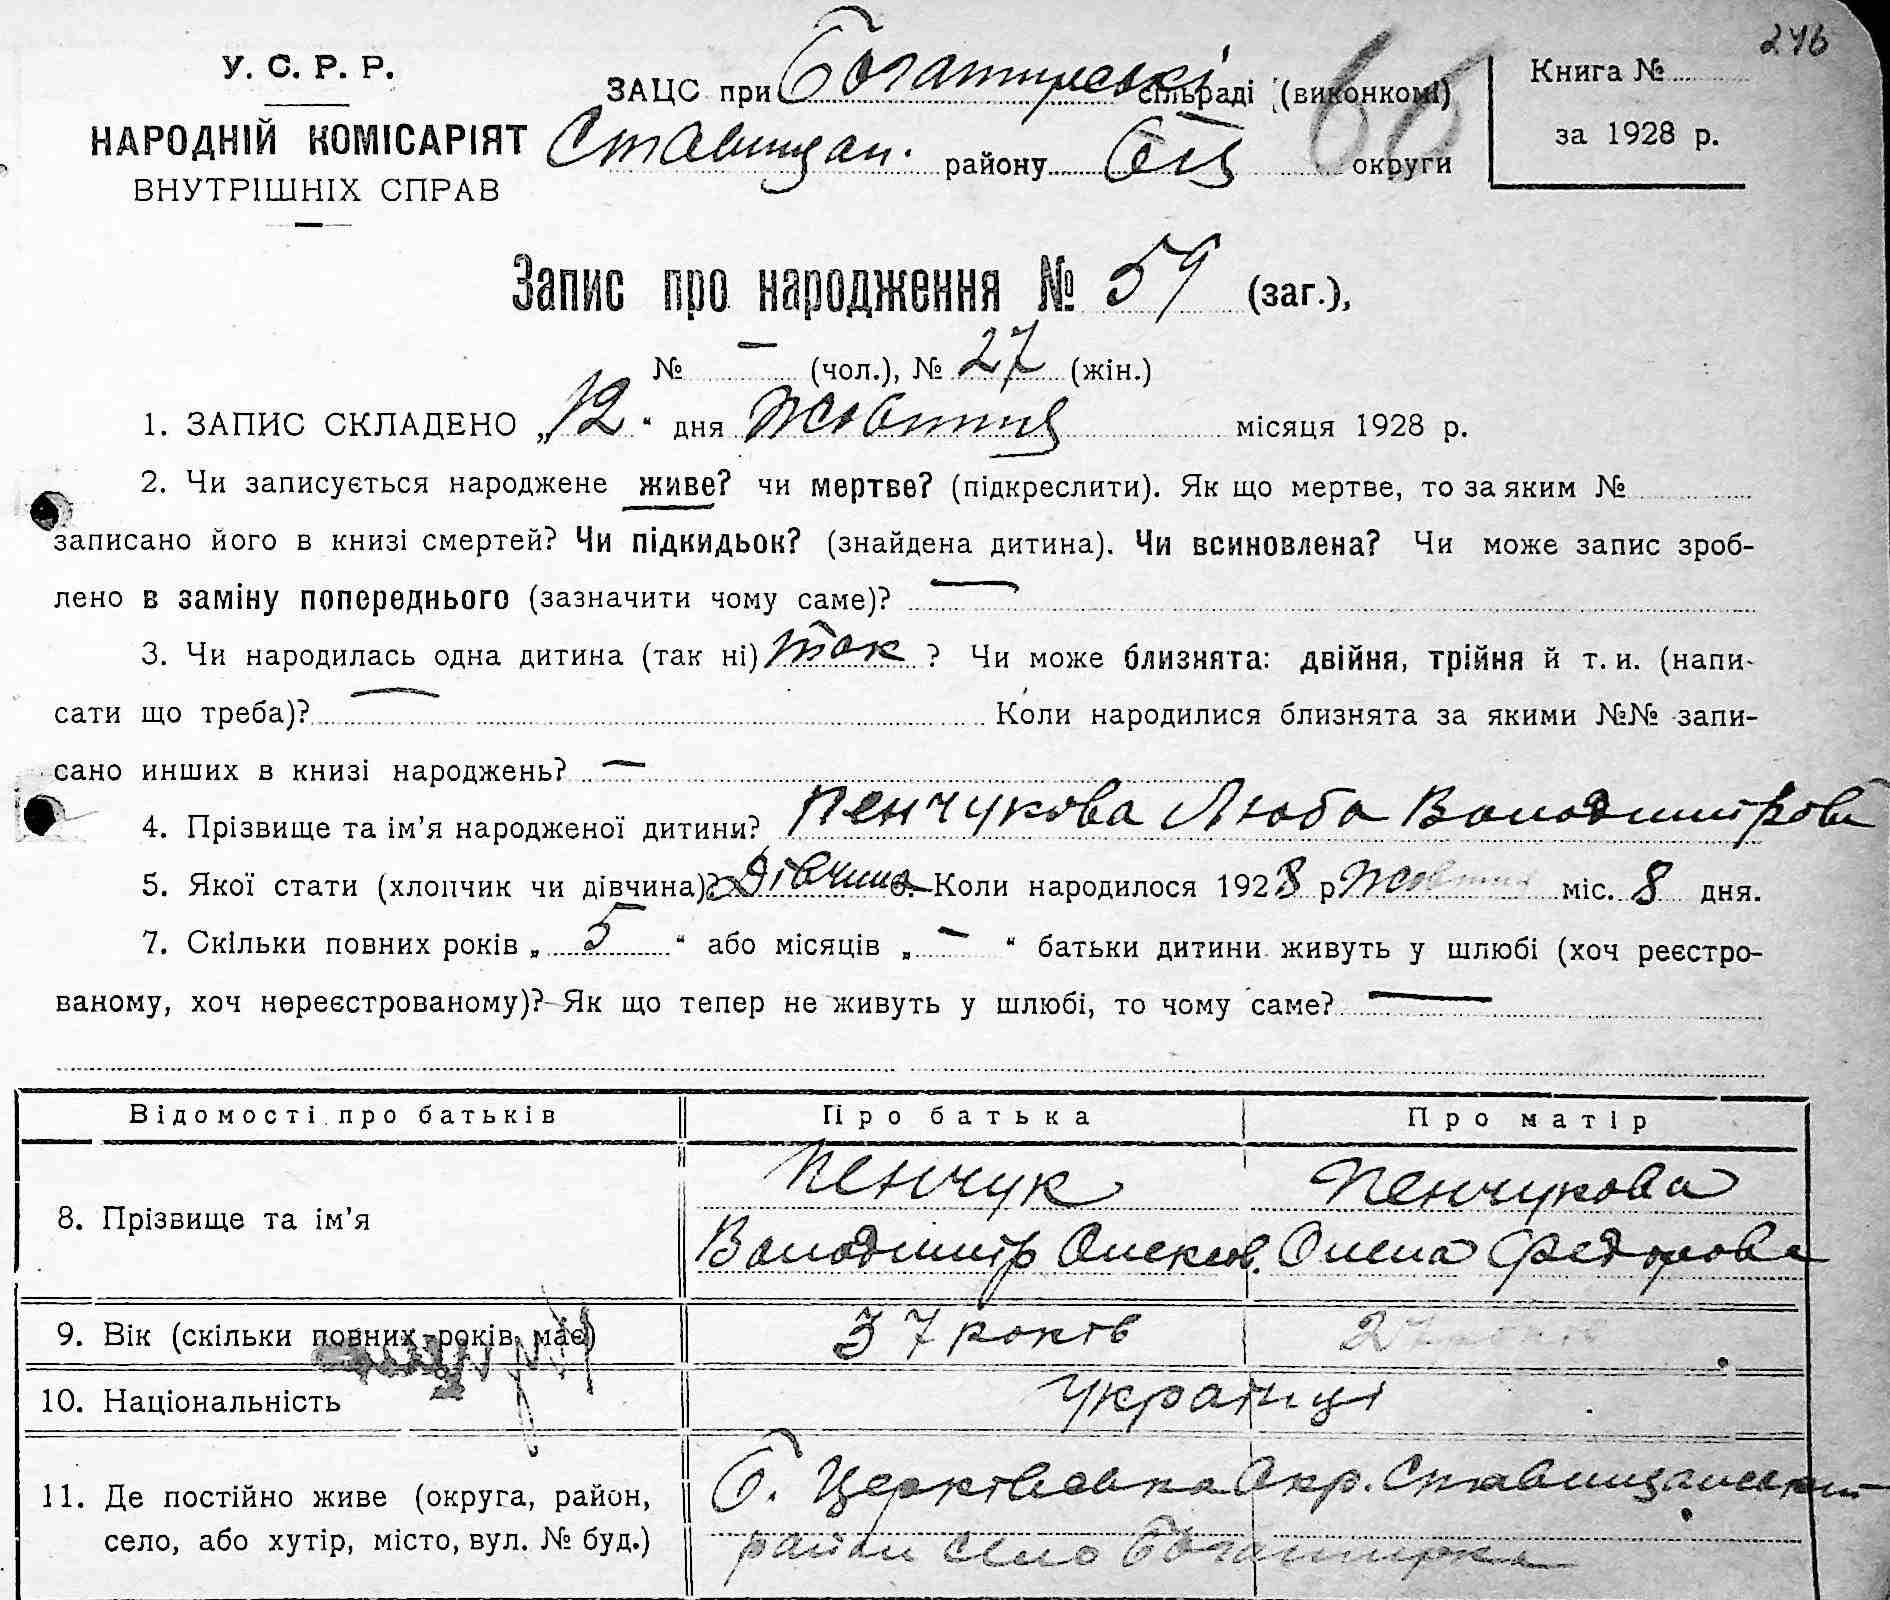 246
У. С. Р. Р.
НАРОДНІЙ КОМІСАРІЯТ
ВНУТРІШНІХ СПРАВ
ЗАЦС при Богатирській сільраді (виконкомі)
Ставищан. району Біл округи
66
Книга №
за 1928 р.
Запис про народження № 59 (заг.),
№ — (чол.), № 27 (жін.)
1. ЗАПИС СКЛАДЕНО „12“ дня Жовтня місяця 1928 р.
2. Чи записується народжене живе? чи мертве? (підкреслити). Як що мертве, то за яким №
записано його в книзі смертей? Чи підкидьок? (знайдена дитина). Чи всиновлена? Чи може запис зроб-
лено в заміну попереднього (зазначити чому саме)? —
3. Чи народилась одна дитина (так ні) так ? Чи може близнята: двійня, трійня й т. и. (напи-
сати що треба)? — Коли народилися близнята за якими №№ запи-
сано инших в книзі народжень? —
4. Прізвище та ім’я народженої дитини? Пенчукова Люба Володимирова
5. Якої стати (хлопчик чи дівчина)? Дівчина 6. Коли народилося 1928 р Жовтня міс. 8 дня.
7. Скільки повних років „ 5 “ або місяців „ — “ батьки дитини живуть у шлюбі (хоч реєстро-
ваному, хоч нереєстрованому)? Як що тепер не живуть у шлюбі, то чому саме? —
Відомості про батьків Про батька Про матір
8. Прізвище та ім’я
Пенчук
Володимир Олексів.
Пенчукова
Олена Федорова
9. Вік (скільки повних років має) 37 років 27 років
10. Національність українці
11. Де постійно живе (округа, район,
село, або хутір, місто, вул. № буд.)
Б. Церківська Окр. Ставищанський
район село Богатирка